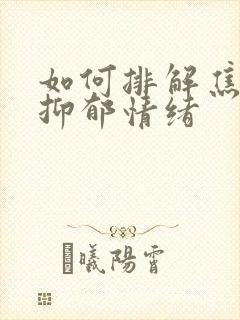 如何排解焦
抑郁情绪
曦陽霄